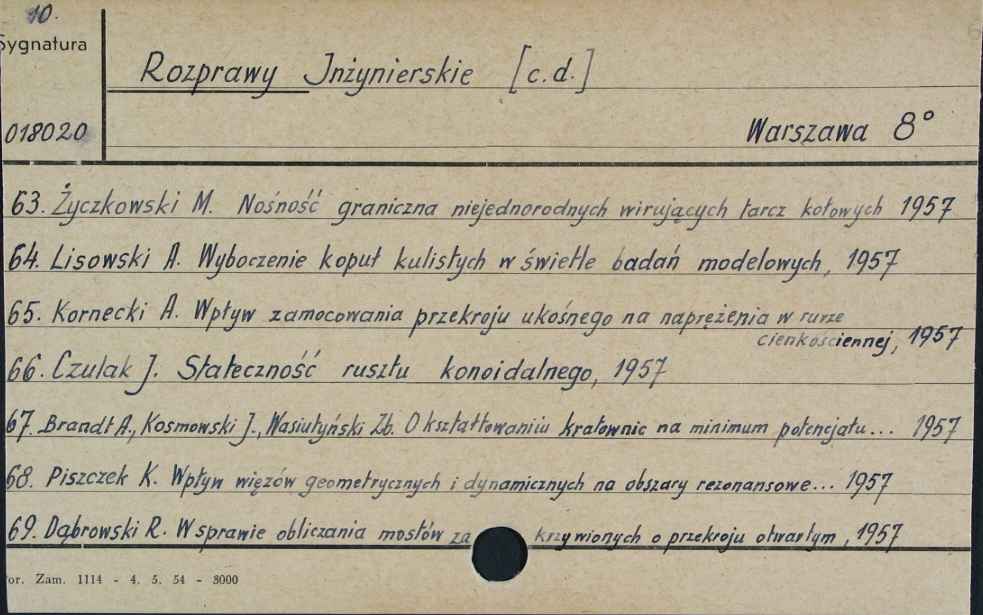 10.
Sygnatura
Rozprawy Inżynierskie [c.d.]
018020
Warszawa 8°
63. Życzkowski M. Nośność graniczna niejednorodnych wirujących tarcz kołowych 1957
64. Lisowski A. Wyboczenie kopuł kulistych w świetle badań modelowych, 1957
65. Kornecki A. Wpływ zamocowania przekroju ukośnego na naprężenia w rurze
cienkościennej, 1957
66. Czulak J. Stateczność rusztu konoidalnego, 1957
67. Brandt A., Kosmowski J., Wasiutyński Zb. O kształtowaniu kratownic na minimum potencjału... 1957
68. Piszczek K. Wpływ więzów geometrycznych i dynamicznych na obszary rezonansowe... 1957
69. Dąbrowski R. W sprawie obliczania mostów za krzywionych o przekroju otwartym, 1957
or. Zam. 1114 - 4. 5. 54 - 3000